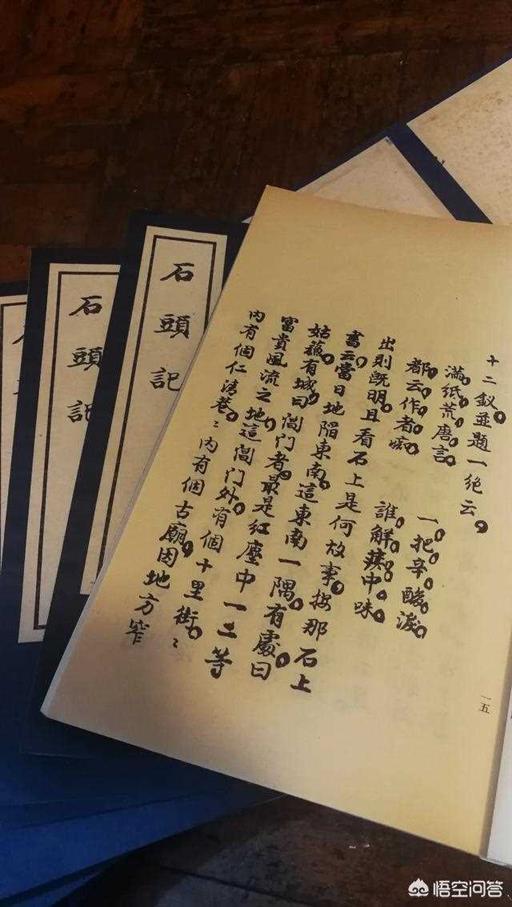 石頭記
石頭記
十二釵並題一絕云
滿紙荒唐言 一把辛酸淚
都云作者痴 誰解辣中味
出則既明且看石上是何故事按那石上
書云當日地陷東南這東南一隅有處曰
姑蘇有城曰閶門者最是紅塵中一二等
富貴風流之地這閶門外有個十里街〻
內有個仁清巷〻內有個古廟因地方窄
一五
悟空问答